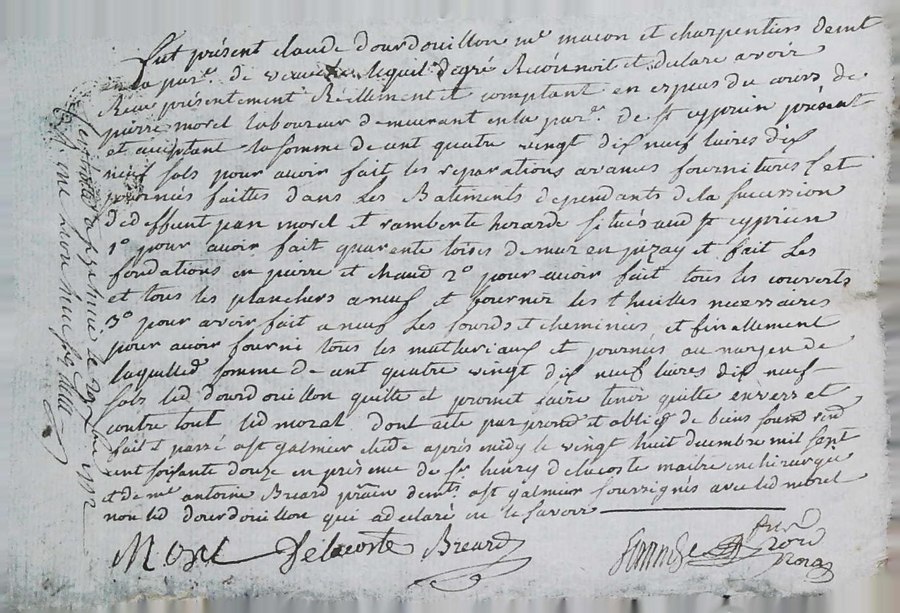 fut présent claude dourdouillon me macon et charpentier demt
en la parse. de lequel degré Reconnoit et declare avoir
Receu présentement Réellement et comptant en espesses du cours de
pierre morel laboureur demeurant en la parse. De st cyprien présent
et acceptant la somme de cent quatre vingt dix neuf livres dix
neuf sols pour avoir fait les reparations avances fournitures et
journées faittes dans Les Batiments dependants de la sucession
de deffunt jean morel et ramberte herarde situés aud st cyprien
1o pour avoir fait quarente toises de mur en pizay et fait Les
fondations en pierre et chaud 2o pour avoir fait tous les couverts
et tous les planchers a neuf et fournir les thuilles necessaires
3o pour avoir fait a neuf Les fourds et cheminées et finallement
pour avoir fourni tous les matheriaux et journées au moyen de
laquelled somme de cent quatre vingt dix neuf livres dix neuf
sols led dourdouillon quitte et promet faire tenir quitte envers et
contre tout led moral dont acte par prom et oblig de biens
fait et passé a st galmier etude après midy le vingt huit decembre mil sept
cent soixante douze en présence de Sr henry delacoste maitre en chirurgie
et de me antoine Breard demts. a st galmier soussignés avec led morel
non led dourdouillon qui a declaré ne le savoir
Morel Delacoste Breard
le 29 1772